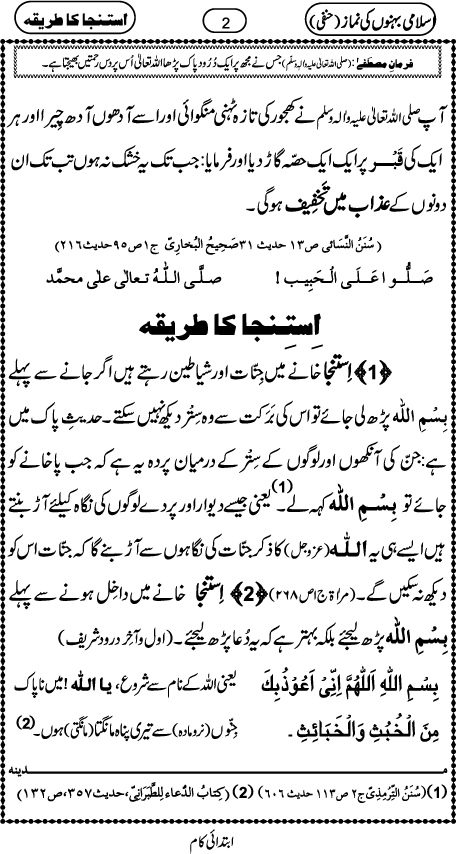 اسلامی بہنوں کی نماز (حنفی)
2
استنجا کا طریقہ
فرمانِ مصطفیٰ: (صلی اللہ تعالیٰ علیہ والہ وسلم) جس نے مجھ پر ایک دُرُود پاک پڑھا اللہ تعالیٰ اُس پر دس رحمتیں بھیجتا ہے۔
آپ صلی اللہ تعالیٰ علیہ والہ وسلم نے کھجور کی تازہ ٹہنی منگوائی اور اسے آدھوں آدھ چیرا اور ہر
ایک کی قَبْر پر ایک ایک حصّہ گاڑ دیا اور فرمایا: جب تک یہ خشک نہ ہوں تب تک ان
دونوں کے عذاب میں تَخْفِیف ہوگی۔
( سُنَنُ النَّسَائی ص۱۳ حدیث ۳۱ صَحِیحُ الْبُخارِیّ ج۱ ص۹۵ حدیث ۲۱۶)
صَلُّوا عَلَی الْحَبِیب ! صلَّی اللّٰہُ تعالٰی علٰی محمَّد
اِستِنجا کا طریقہ
﴿1﴾ اِستنجا خانے میں جِنّات اور شیاطین رہتے ہیں اگر جانے سے پہلے
بِسْمِ اللہ پڑھ لی جائے تو اس کی بَرَکت سے وہ سِتْر دیکھ نہیں سکتے۔ حدیثِ پاک میں
ہے: جنّ کی آنکھوں اور لوگوں کے سِتْر کے درمیان پردہ یہ ہے کہ جب پاخانے کو
جائے تو بِسْمِ اللہ کہہ لے۔(1) یعنی جیسے دیوار اور پردے لوگوں کی نگاہ کیلئے آڑ بنتے
ہیں ایسے ہی یہ اللہ (عزوجل) کا ذکر جنّات کی نگاہوں سے آڑ بنے گا کہ جنّات اس کو
دیکھ نہ سکیں گے۔ (مراۃ ج۱ ص۲۶۸) ﴿2﴾ اِستنجا خانے میں داخِل ہونے سے پہلے
بِسْمِ اللہ پڑھ لیجئے بلکہ بہتر ہے کہ یہ دُعا پڑھ لیجئے۔ (اول و آخر درود شریف)
بِسْمِ اللہِ اَللّٰھُمَّ اِنِّیْ اَعُوْذُبِکَ یعنی اللہ کے نام سے شروع، یا اللہ ! میں ناپاک
مِنَ الْخُبُثِ وَالْخَبَائِثِ۔ جِنّوں (نر و مادہ) سے تیری پناہ مانگتا (مانگتی) ہوں۔(2)
مدینہ
(1) (سُنَنُ التِّرْمِذِیّ ج۲ ص۱۱۳ حدیث ۶۰۶) (2) (کِتابُ الدُّعاء لِلطَّبَرَانِی، حدیث ۳۵۷، ص۱۳۲)
ابتدائی کام